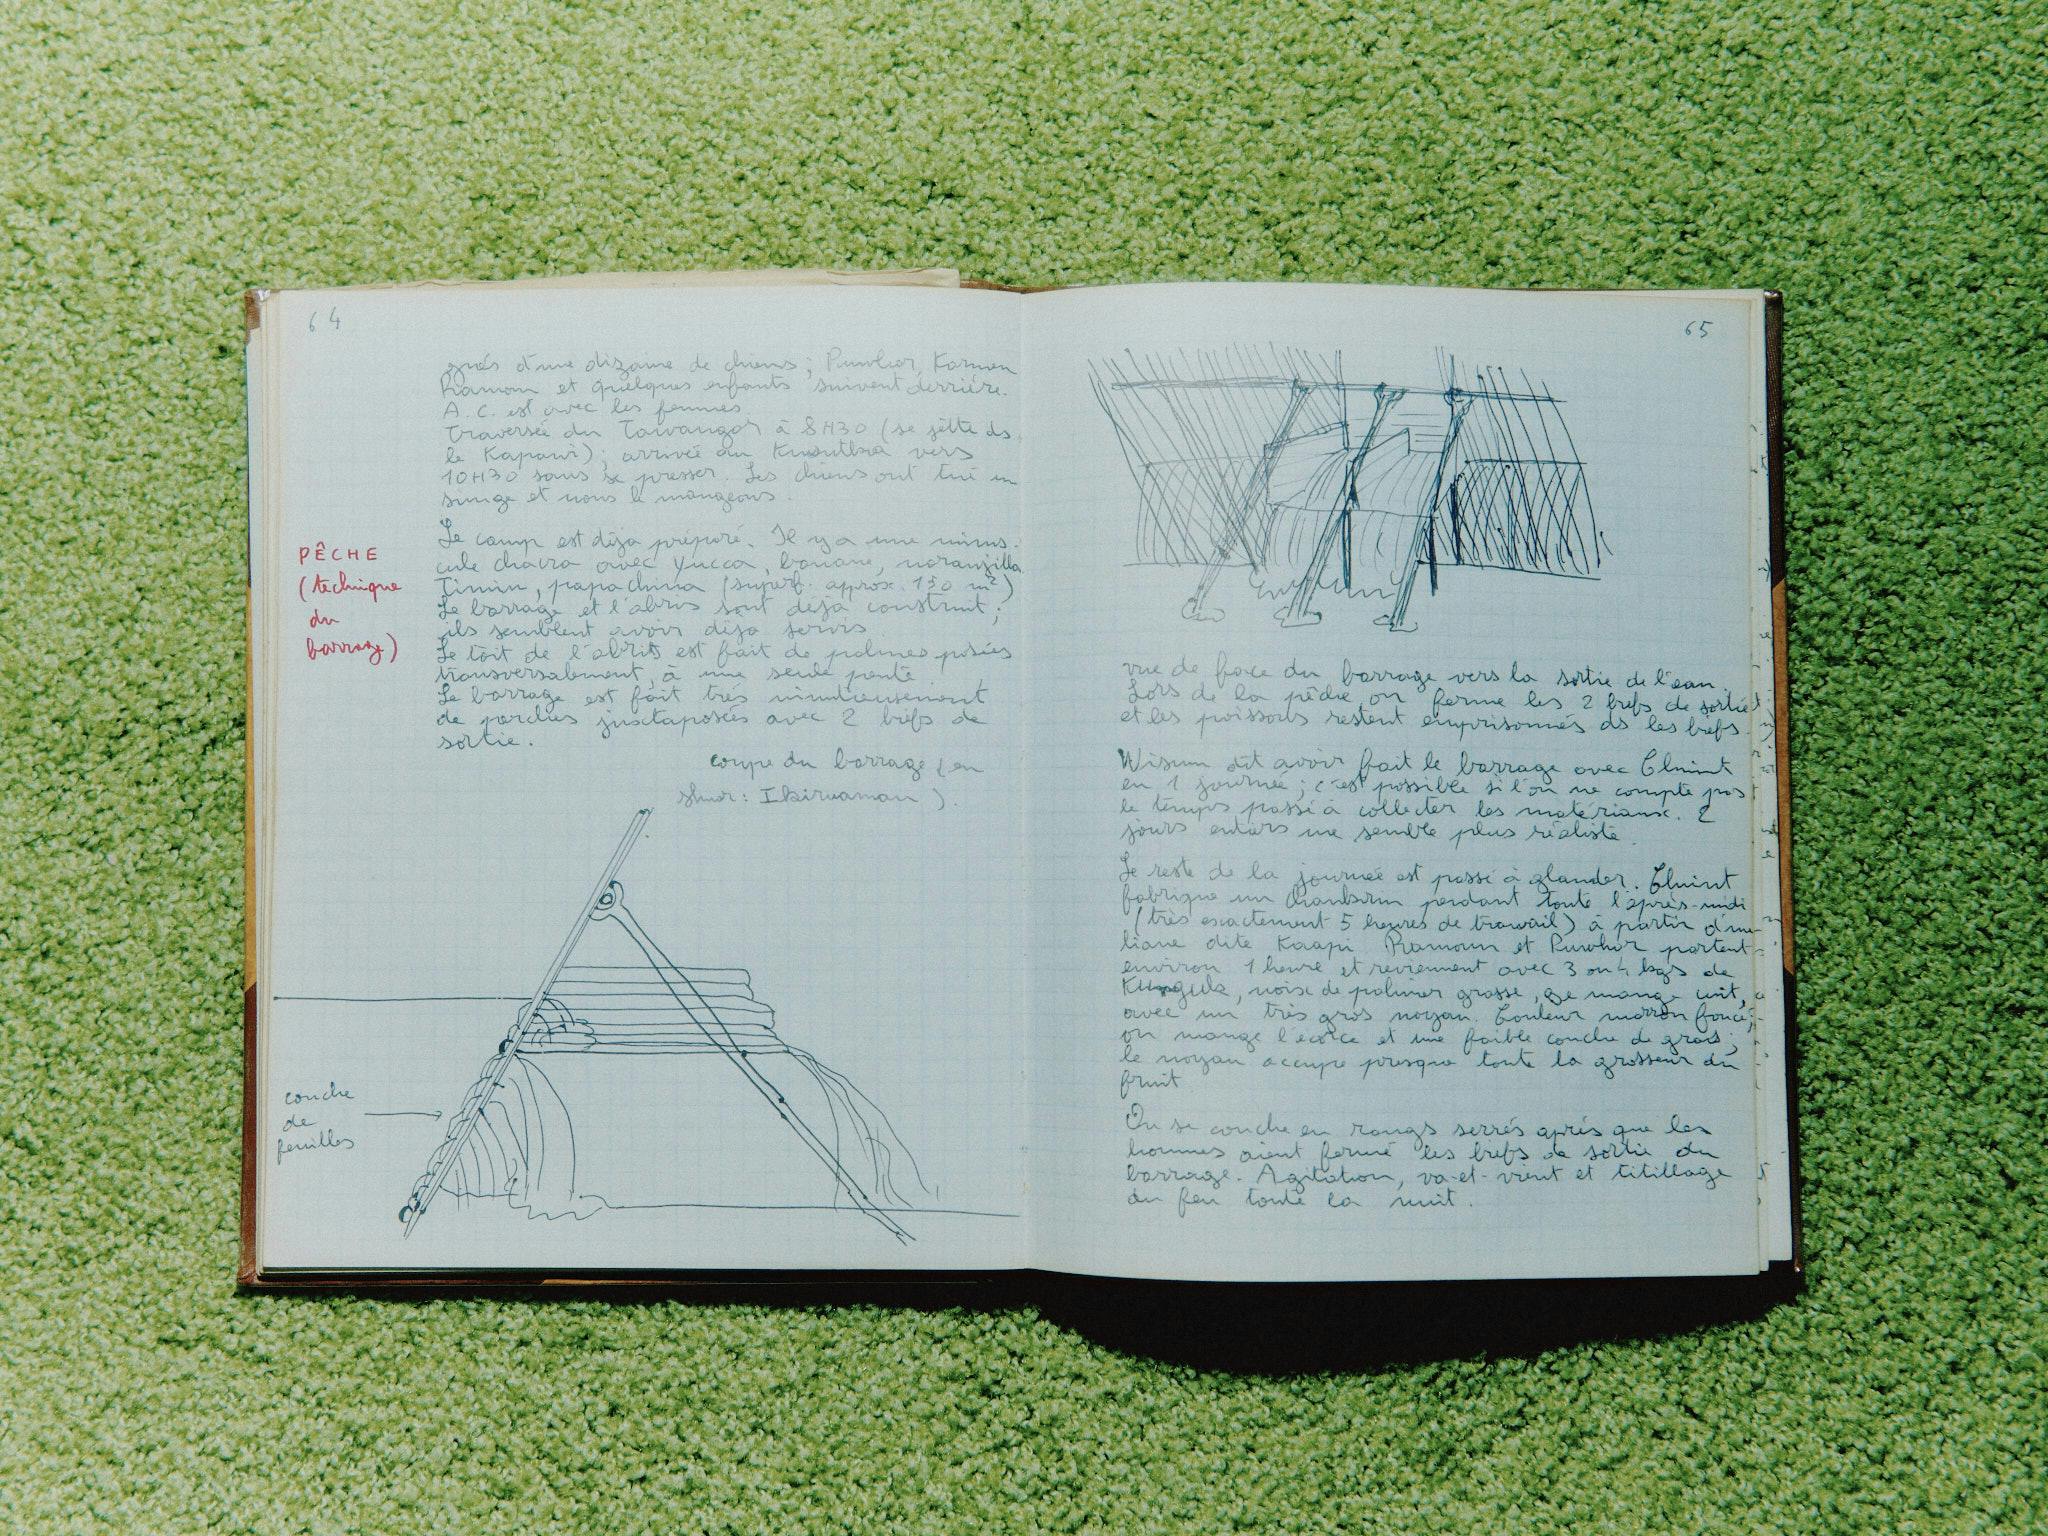 64
gnés d'une dizaine de chiens ; Puwhar, Karmen
Ramon et quelques enfants suivent derrière.
A.C. est avec les femmes
Traversée du à 8H30 (se jette ds
le Kapawi) ; arrivée au vers
10H30 sans se presser. Les chiens ont tué un
singe et nous le mangeons.
PÊCHE
(technique
du
barrage)
Le camp est déja préparé. Il y a une minus-
cule chacra avec Yucca, banane, naranjilla
Timiu, papachina (superf. approx. 150 m²)
Le barrage et l'abris sont déja construit ;
ils semblent avoir déja servis
Le toit de l'abris est fait de palmes posées
transversalement, à une seule pente
Le barrage est fait très minutieusement
de perches juxtaposées avec 2 biefs de
sortie.
coupe du barrage (en
shuar : ).
couche
de
feuilles
65
vue de face du barrage vers la sortie de l'eau.
Lors de la pêche on ferme les 2 biefs de sortie
et les poissons restent emprisonnés ds les biefs.
Wisum dit avoir fait le barrage avec Chuint
en 1 journée ; c'est possible si l'on ne compte pas
le temps passé à collecter les matériaux. 2
jours entiers me semble plus réaliste.
Le reste de la journée est passé à glander. Chuint
fabrique un pendant toute l'après-midi
(très exactement 5 heures de travail) à partir d'une
liane dite Kaapi Ramoun et Puwhar partent
environ 1 heure et reviennent avec 3 ou 4 kgs de
noix de palmier grasse, se mange cuit,
avec un très gros noyau. Couleur marron foncé ;
on mange l'écorce et une faible couche de gras ;
le noyau occupe presque toute la grosseur du
fruit
On se couche en rangs serrés après que les
hommes aient fermé les biefs de sortie du
barrage. Agitation, va-et-vient et titillage
du feu toute la nuit.